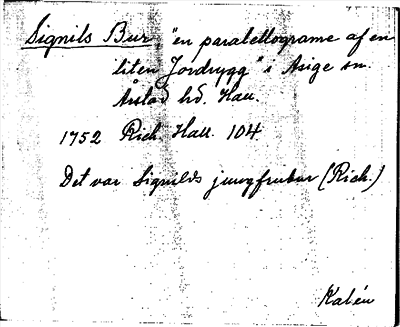 Signils Bur, "en paralellograme af en
liten Jordrygg" i Asige sn.
Årstad hd. Hall.
1752 Rich. Hall. 104.
Det var Signilds jungfrubur (Rich.)
Kalén